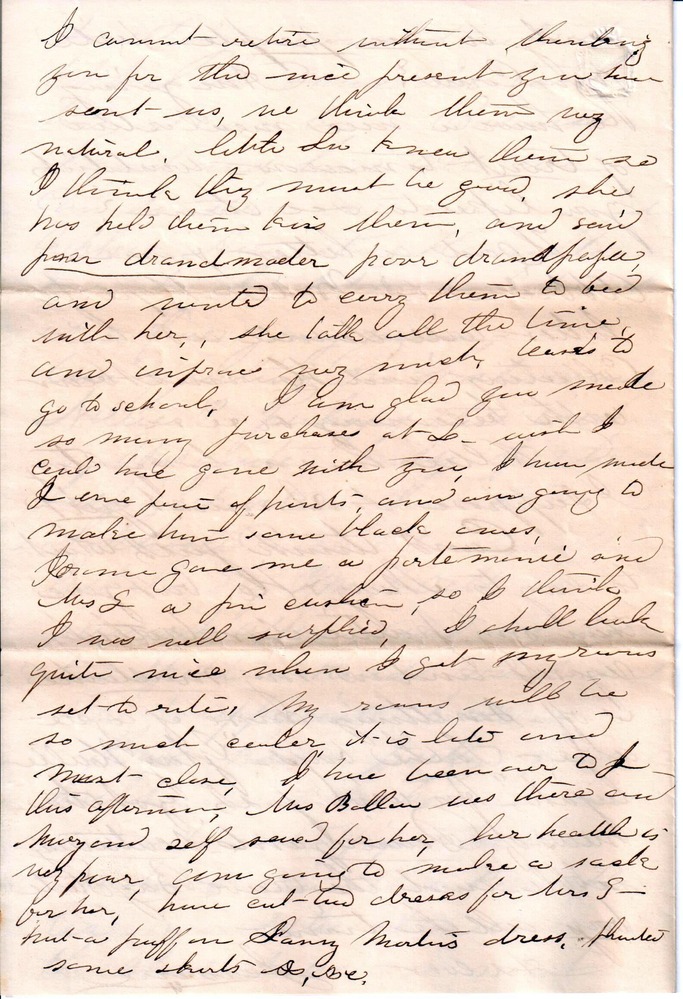 I cannot retire without thanking
you for the nice present you have
sent us, we think them very
natural. little Lu knew them so
I think they must be good, she
has held them kiss them, and said
poor drandmoder poor drandpapa,
and wanted to carry them to bed
with her, she talk all the time,
and improves very much, to
go to school, I am glad you made
so many purchases at L- wish I
could have gone with you, I have made
J one pair of pants, and am going to
make him some black ones,
gave me a portemonie and
Mrs G a pin cushion, so I think
I was well surplied, I shall look
quite nice when I get my rooms
set to rite, My rooms will be
so much cooler, it is late and
must close, I have been over to J-
this afternoon, Mrs Ballou was there and
Mary and self sewed for her, her health is
very poor, am going to make a sack
for her, have cut two dresses for Mrs G-
put a puff on Fanny dress,
some skirts &c, &c,